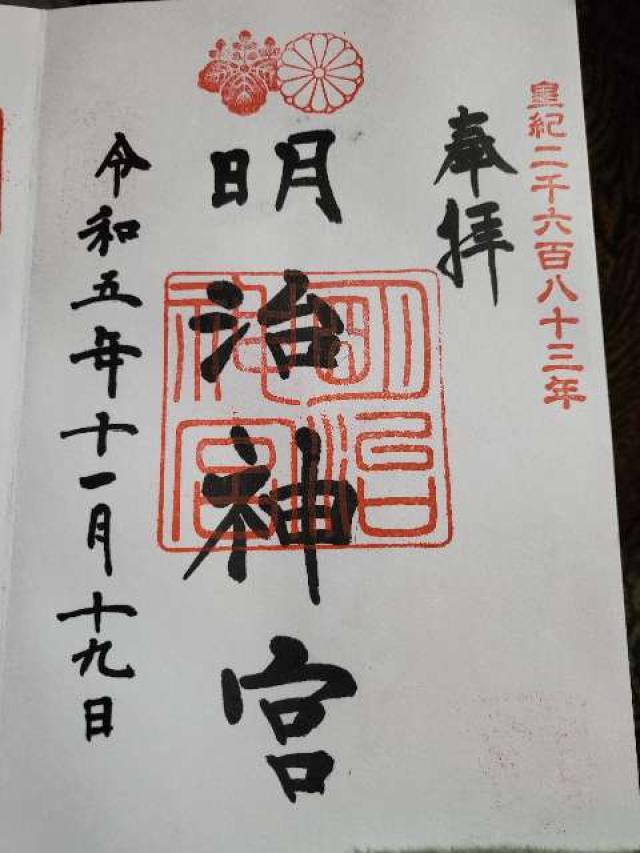 皇紀二千六百八十三年
奉拝
明治神宮
明治神宮
令和五年十一月十九日